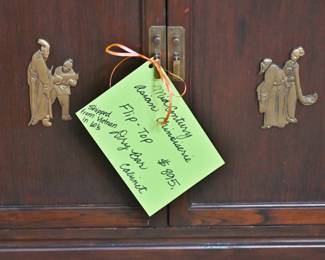 Midcentury
Asian Chinoiserie
Flip-Top
Dry Bar
Cabinet
$895.
Shipped
from Vietnam
in 60's